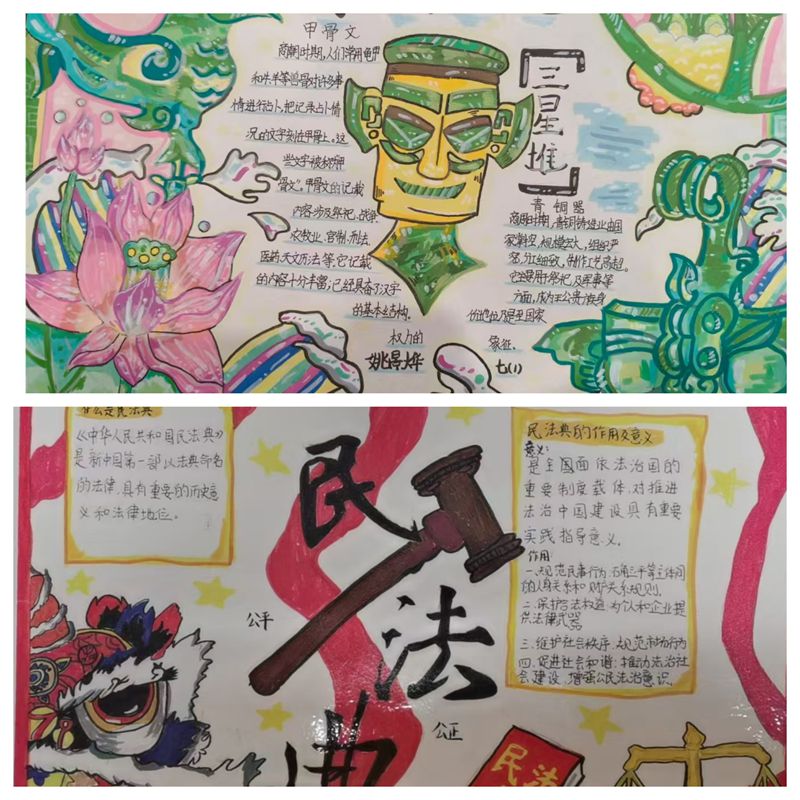 甲骨文
商朝时期,人们常用龟甲
和牛羊等兽骨对许多事
情进行占卜,把记录占卜情
况的文字刻在甲骨上。这
些文字被称甲
骨文”。甲骨文的记载
内容涉及祭祀、战争、
农牧业、官制、刑法、
医药、天文历法等,它记载
的内容十分丰富;已经具备了汉字
的基本结构。
三星堆
青铜器
商周时期,青铜铸造业由国
家掌控,规模宏大,组织严
密,分工细致,制作工艺高超。
它主要用于祭祀及军事等
方面,成为王公贵族身
份地位乃是至国家
权力的
象征.
姚得华
七(1)
什么是民法典
《中华人民共和国民法典》
是新中国第一部以法典命名
的法律,具有重要的历史意
义和法律地位。
民法典
公平
公正
民法典的作用及意义
意义:
是全国面依法治国的
重要制度载体,对推进
法治中国建设具有重要
实践指导意义。
作用:
一、规范民事行为,
的人身关系和财产关系规则.
二、保护合法权益 为个人和企业提
供法律武器
三、维护社会秩序、规范市场行为
四、促进社会和谐:推动法治社
会建设、增强公民法治意识.
民法